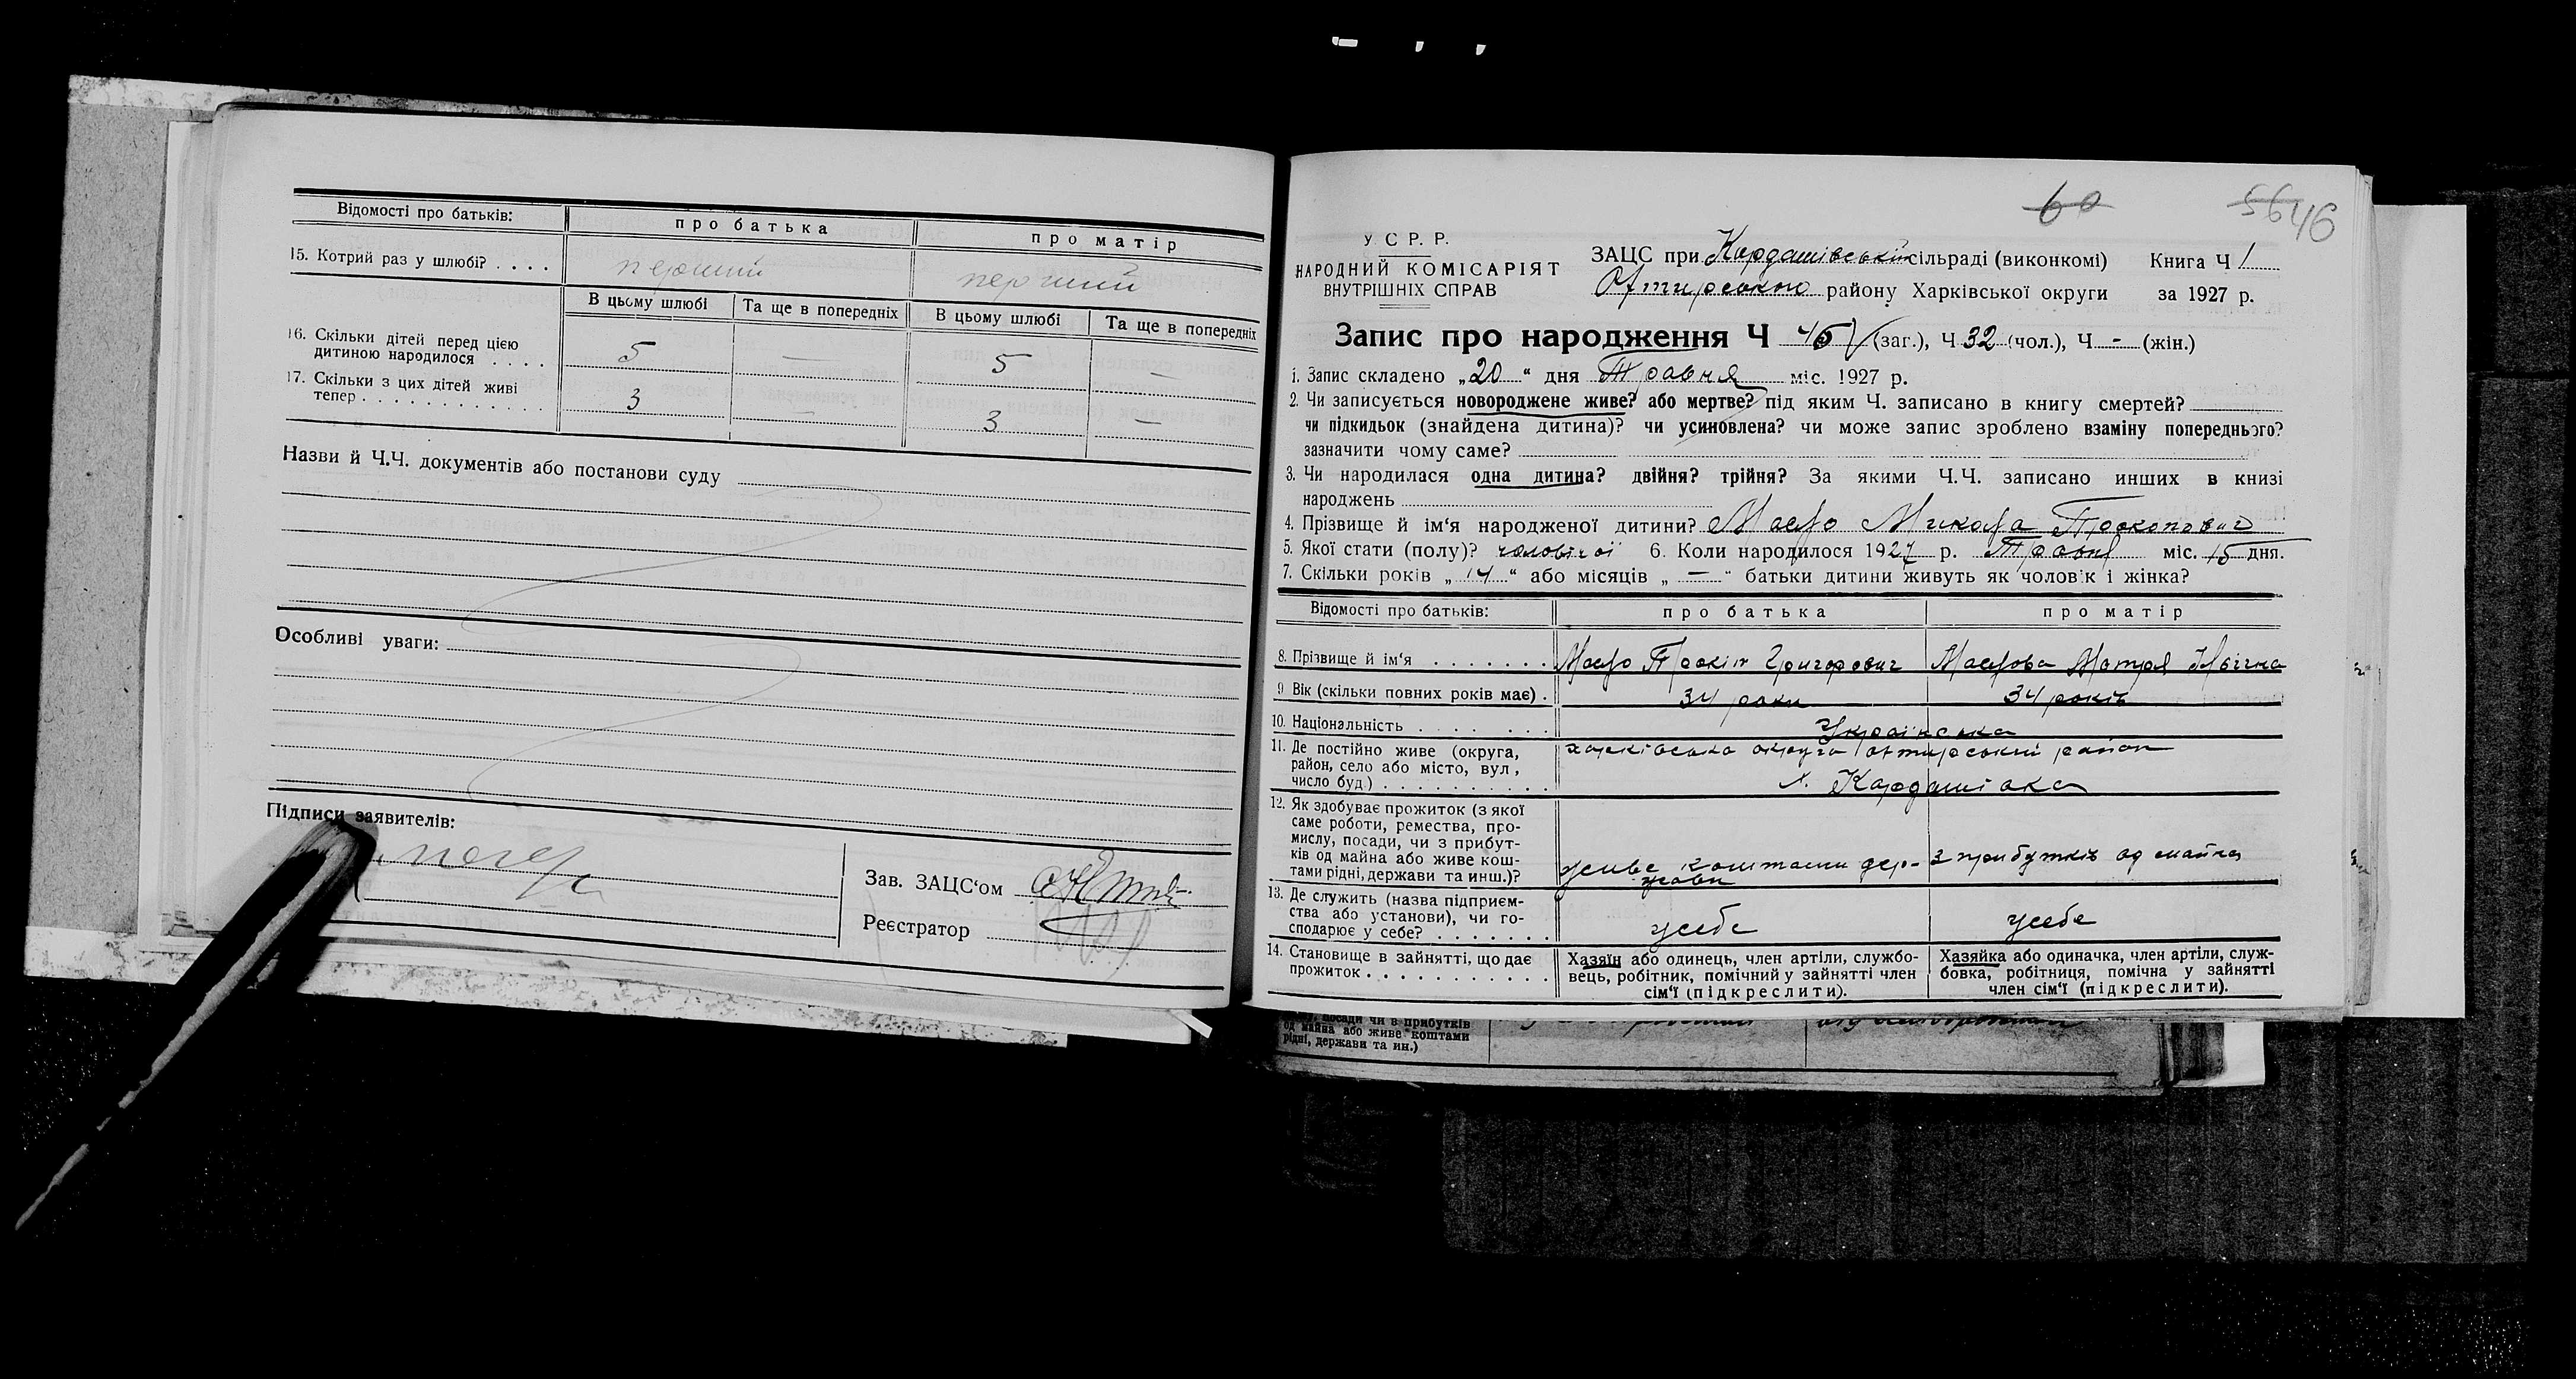 Відомості про батьків: про батька про матір
15. Котрий раз у шлюбі? . . . . перший перший
В цьому шлюбі Та ще в попередніх В цьому шлюбі Та ще в попередніх
16. Скільки дітей перед цією
дитиною народилося . . . . 5 — 5 —
17. Скільки з цих дітей живі
тепер . . . . . . . . . . . . 3 — 3 —
Назви й Ч.Ч. документів або постанови суду
Особливі уваги:
Підписи заявителів:
Зав. ЗАЦС‘ом
Реєстратор
60 56 46
У. С Р. Р.
НАРОДНИЙ КОМІСАРІЯТ
ВНУТРІШНІХ СПРАВ
ЗАЦС при Кардашівській сільраді (виконкомі) Книга Ч 1
району Харківської округи за 1927 р.
Запис про народження Ч 45 (заг.), Ч 32 (чол.), Ч - (жін.)
1. Запис складено „20“ дня Травня міс. 1927 р.
2. Чи записується новороджене живе? або мертве? під яким Ч. записано в книгу смертей?
чи підкидьок (знайдена дитина)? чи усиновлена? чи може запис зроблено взаміну попереднього?
зазначити чому саме?
3. Чи народилася одна дитина? двійня? трійня? За якими Ч.Ч. записано инших в книзі
народжень
4. Прізвище й ім‘я народженої дитини? Масло Микола Прокопович
5. Якої стати (полу)? чоловічої 6. Коли народилося 1927 р. Травня міс. 15 дня.
7. Скільки років „14“ або місяців „—“ батьки дитини живуть як чоловік і жінка?
Відомості про батьків: про батька про матір
8. Прізвище й ім‘я . . . . . . . Масло Прокіп Григорович Маслова Мотря
9 Вік (скільки повних років має) . 34 роки 34 років
10. Національність . . . . . . . Українська
11. Де постійно живе (округа, харківська округа район
район, село або місто, вул,
число буд.) . . . . . . . . . . х. Кардашівка
12. Як здобуває прожиток (з якої
саме роботи, ремества, про-
мислу, посади, чи з прибут-
ків од майна або живе кош- живе коштами дер- з прибутків од майна
тами рідні, держави та инш.)? жави
13. Де служить (назва підприєм-
ства або установи), чи го- у себе у себе
сподарює у себе? . . . . . . .
14. Становище в зайнятті, що дає Хазяїн або одинець, член артіли, службо- Хазяйка або одиначка, член артіли, служ-
прожиток . . . . . . . . . . . вець, робітник, помічний у зайнятті член бовка, робітниця, помічна у зайнятті
сім‘ї (підкреслити). член сім‘ї (підкреслити).
посади чи з прибутків
од майна або живе коштами
рідні, держави та ин.)